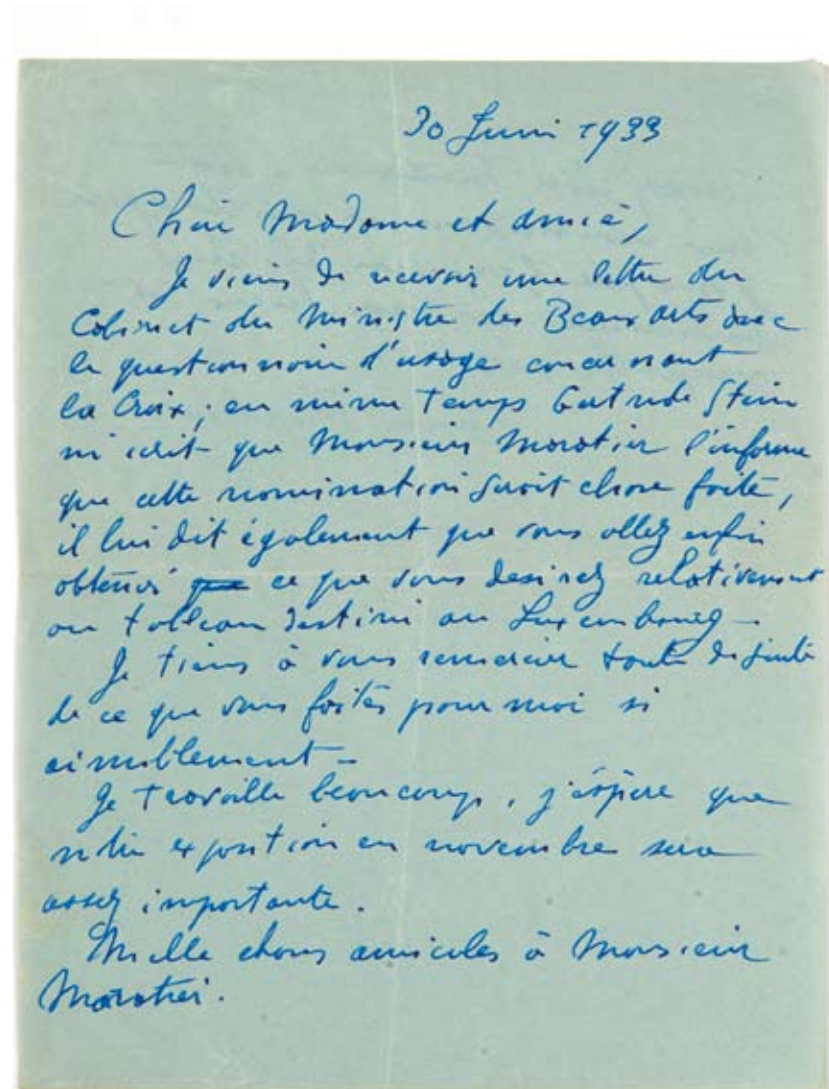 30 Juin 1933
Chère Madame et amie,
Je viens de recevoir une lettre du
Cabinet du Ministre des Beaux arts avec
le questionnaire d'usage concernant
la Croix ; en même temps Gertrude Stein
m'écrit que Monsieur Moratier l'informe
que cette nomination serait chose faite,
il lui dit également que vous allez enfin
obtenir que ce que vous desirez relativement
au tableau destiné au Luxembourg –
Je tiens à vous remercier toute de suite
de ce que vous faites pour moi si
aimablement –
Je travaille beaucoup, j'éspère que
notre exposition en novembre sera
assez importante.
Mille choses amicales à Monsieur
Moratier.